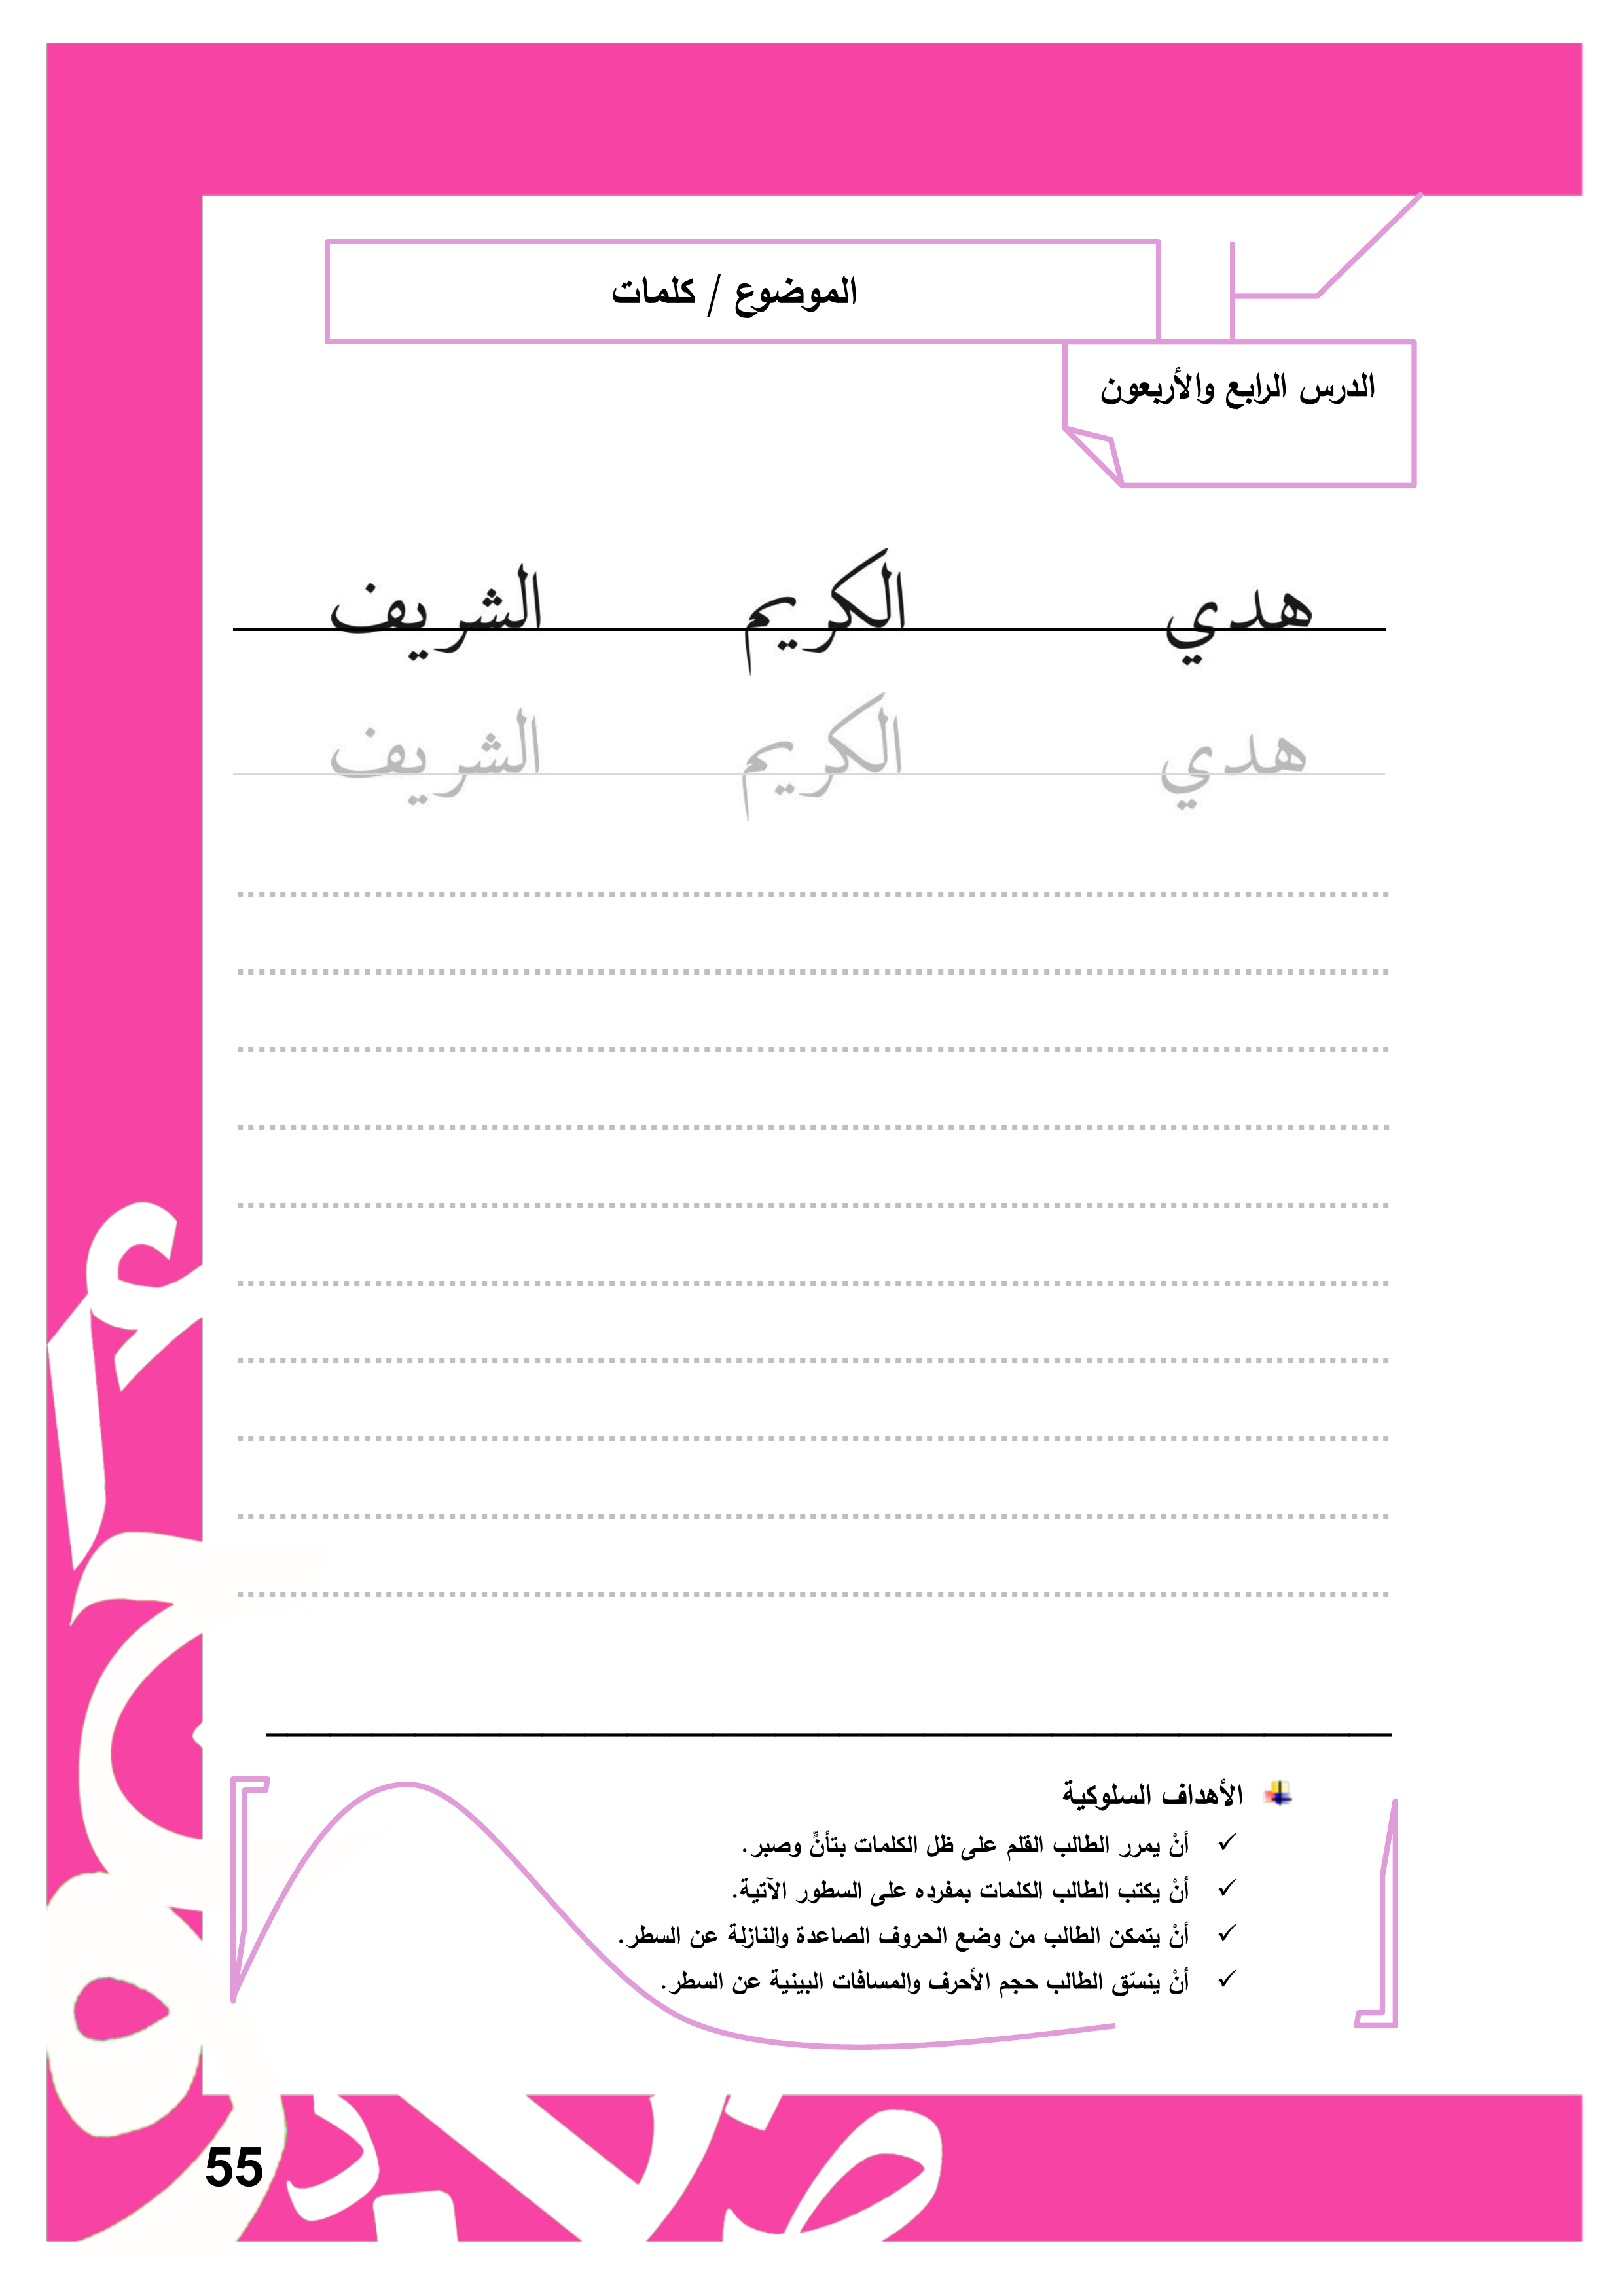 الموضوع / كلمات
الدرس الرابع والأربعون
هدي الكريم الشريف
هدي الكريم الشريف
الأهداف السلوكية
أنْ يمرر الطالب القلم على ظل الكلمات بتأنٍّ وصبر.
أنْ يكتب الطالب الكلمات بمفرده على السطور الآتية.
أنْ يتمكن الطالب من وضع الحروف الصاعدة والنازلة عن السطر.
أنْ ينسّق الطالب حجم الأحرف والمسافات البينية عن السطر.
55